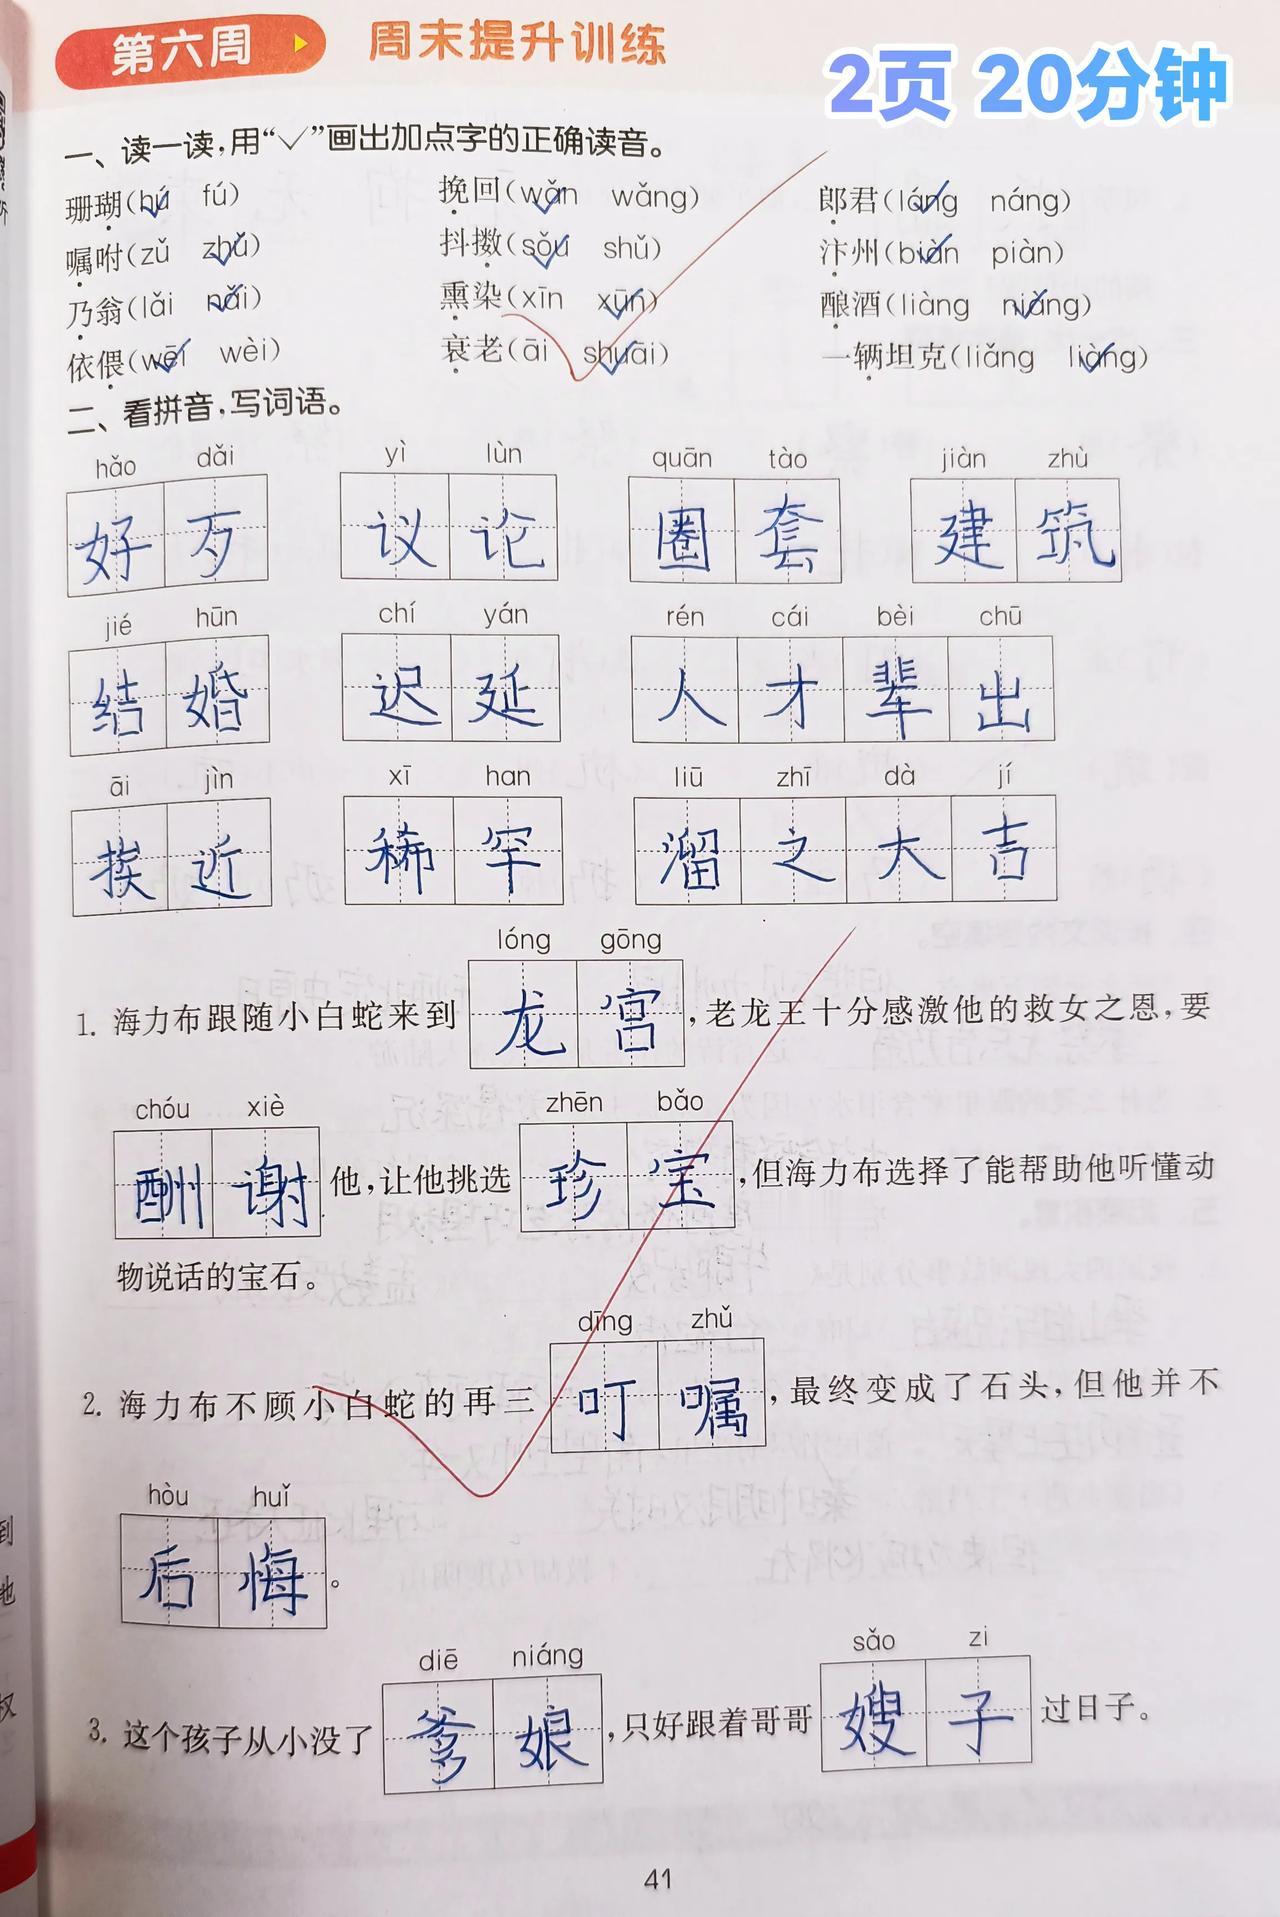 第六周 周末提升训练 2页 20分钟
一、读一读,用“✓”画出加点字的正确读音。
珊瑚(hú fú) 挽回(wǎn wǎng) 郎君(láng náng)
嘱咐(zǔ zhǔ) 抖擞(sǒu shǔ) 汴州(biàn piàn)
乃翁(lǎi nǎi) 熏染(xīn xūn) 酿酒(liàng niàng)
依偎(wēi wèi) 衰老(āi shuāi) 一辆坦克(liǎng liàng)
二、看拼音,写词语。
hǎo dǎi yì lùn quān tào jiàn zhù
好歹 议论 圈套 建筑
jié hūn chí yán rén cái bèi chū
结婚 迟延 人才辈出
āi jìn xī han liū zhī dà jí
挨近 稀罕 溜之大吉
lóng gōng
1. 海力布跟随小白蛇来到龙宫,老龙王十分感激他的救女之恩,要
chóu xiè zhēn bǎo
酬谢他,让他挑选珍宝,但海力布选择了能帮助他听懂动
物说话的宝石。
dīng zhǔ
2. 海力布不顾小白蛇的再三叮嘱,最终变成了石头,但他并不
hòu huǐ
后悔。
diē niáng sǎo zi
3. 这个孩子从小没了爹娘,只好跟着哥哥嫂子过日子。
41